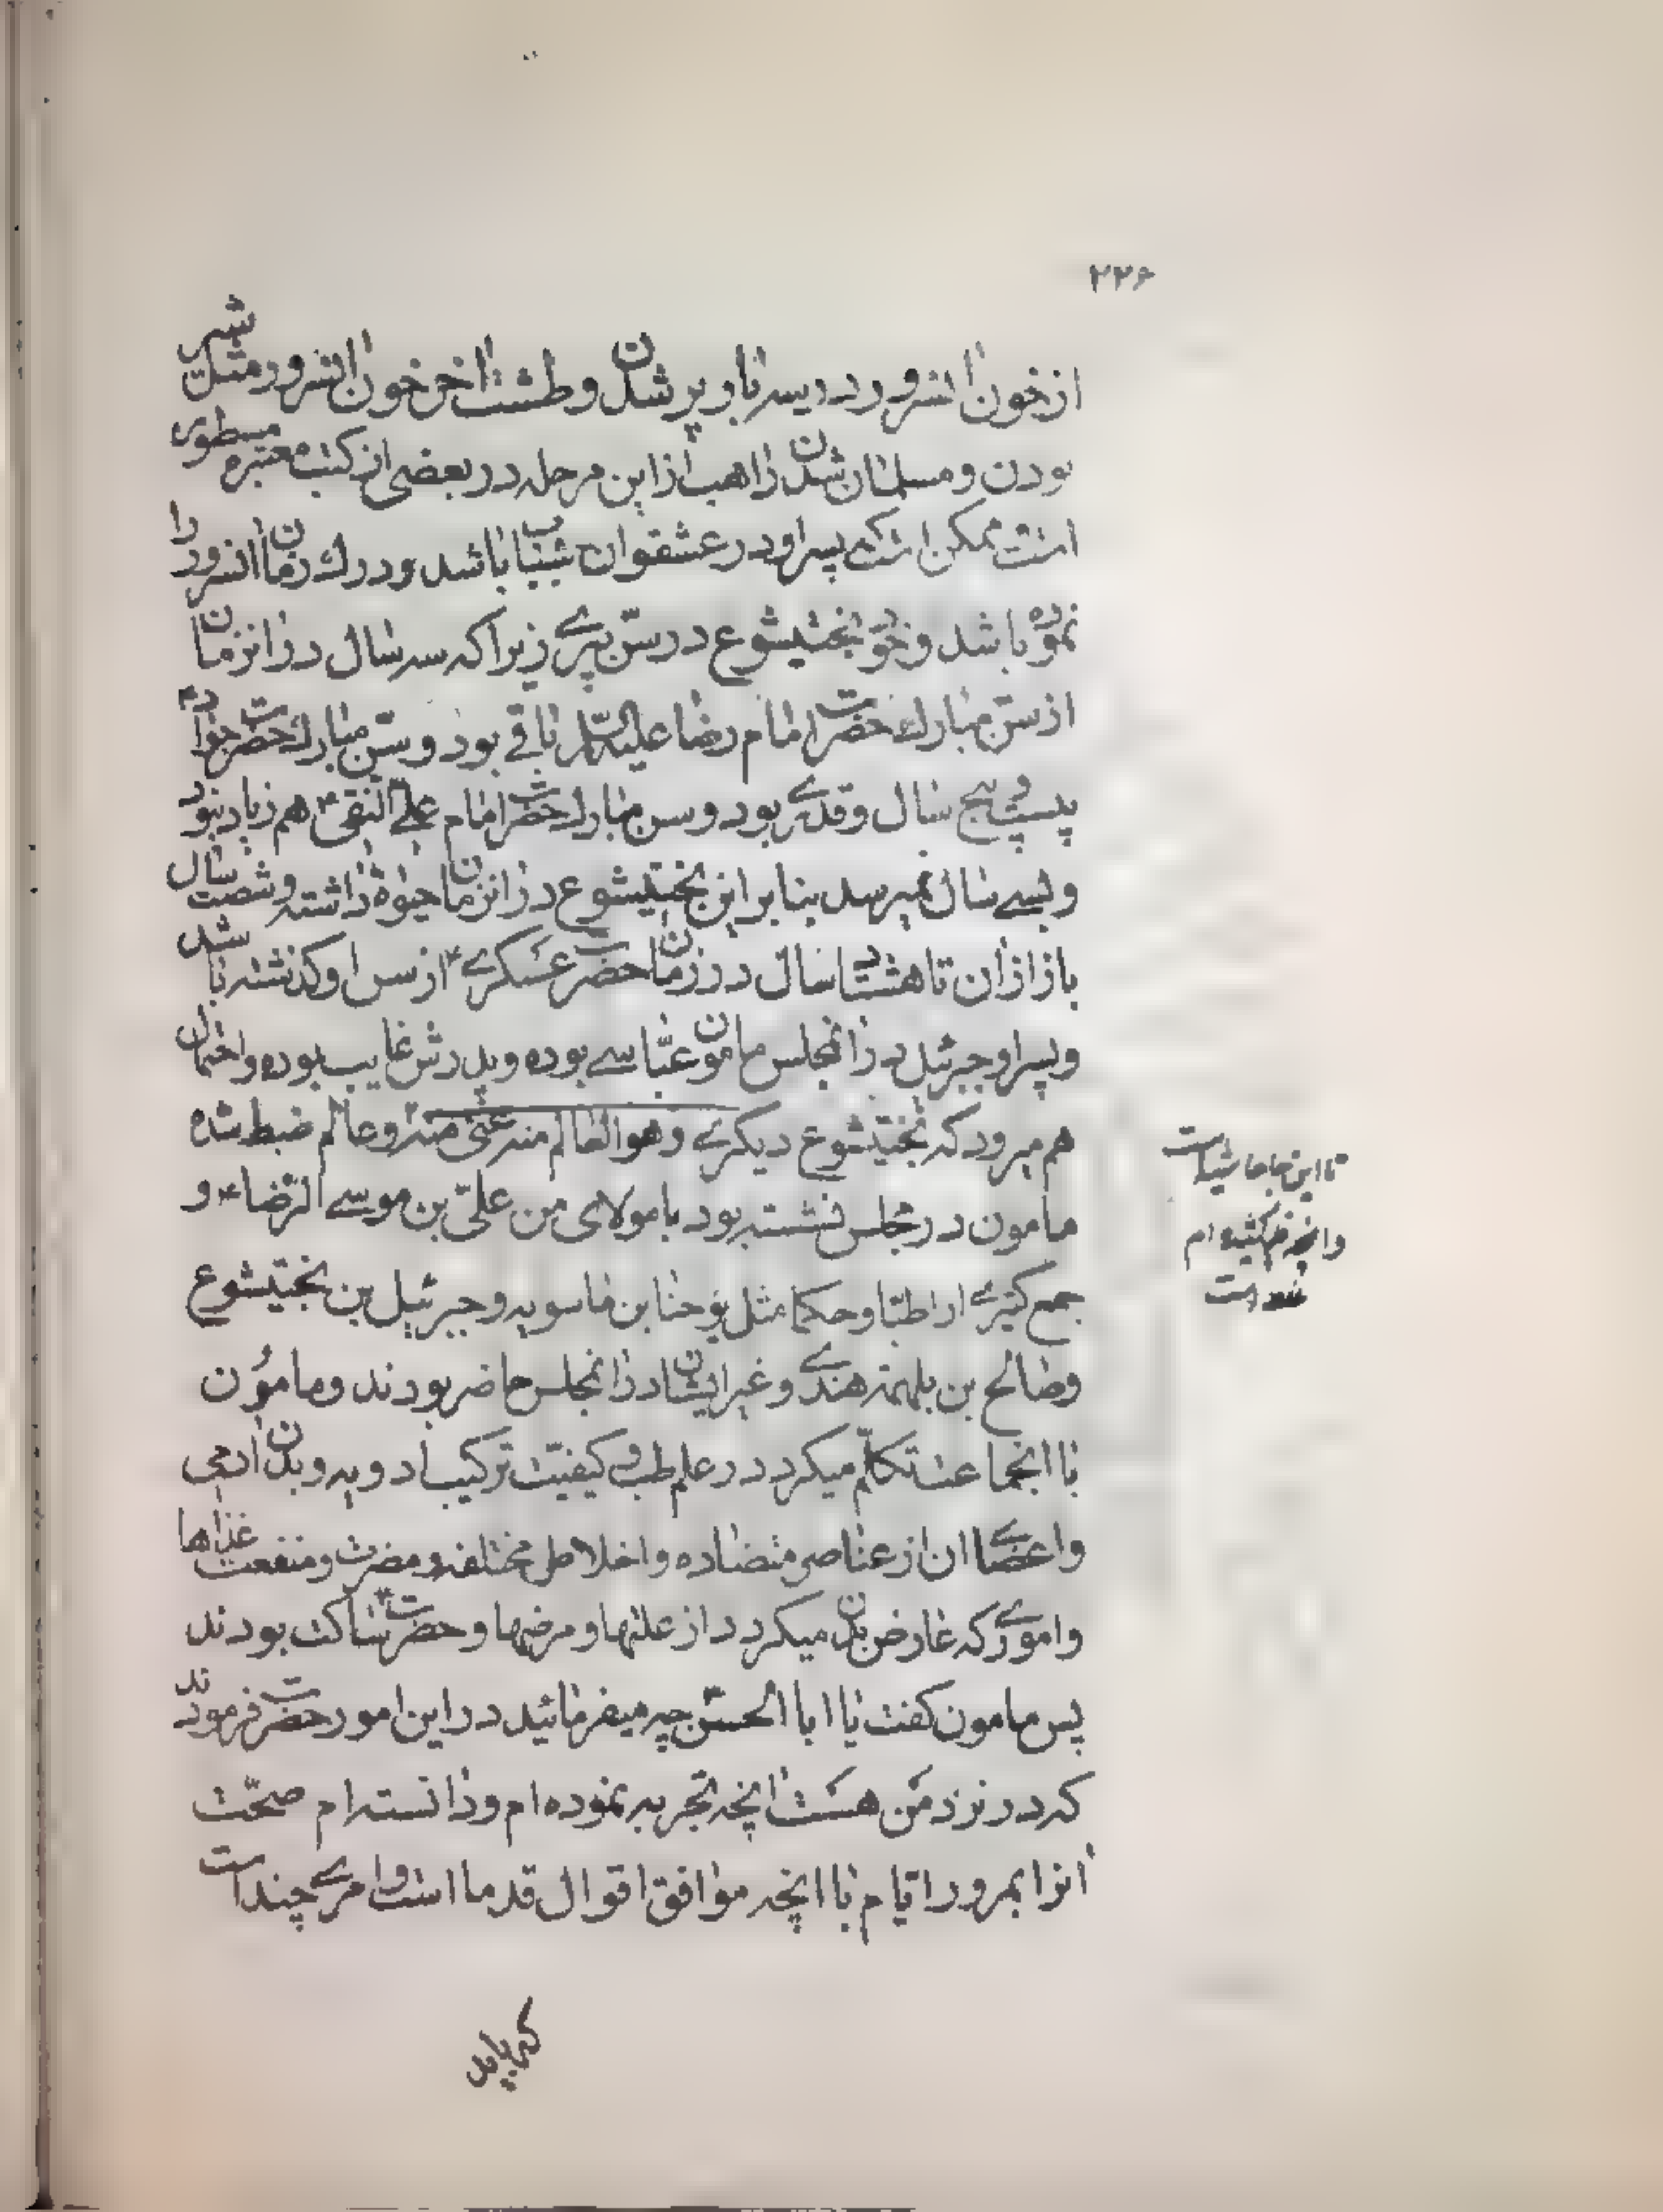 ۲۲۶
از خون انسرور در دیر ناو پر شدن و طشت اخر خون انسرور مثل شیر
بودن و مسلمان شدن راهب از این مرحله در بعضی از کتب معتبره مسطور
است ممکن است که پسر او در عنفوان شباب باشد و درک زمان انسرور را
نموده باشد و خود بختیشوع در سن پیری زیرا که سه سال در انزمان
از سن مبارک حضرت امام رضا علیه السلام باقی بود و سن مبارک حضرت جواد ع
بیست پنج سال و قدری بود و سن مبارک حضرت امام علی النقی ع هم زیاد نبود
و بسی سال نمیرسد بنا بر این بختیشوع در انزمان حیوة داشته و شصت سال
باز از ان تا هشتاد سال در زمان حضرت عسکری ع از سن او گذشته باشد
و پسر او جبرئیل در انمجلس مامون عباسی بوده و پدرش غایب بوده و احتمال
هم میرود که بختیشوع دیگری و هو العالم منه عفی عنه و عالم ضبط شده
مامون در مجلس نشسته بود با مولای من علی بن موسی الرضا ع و
جمع کثیری از اطبا و حکما مثل یوحنا بن ماسویه و جبرئیل بن بختیشوع
و صالح بن بلهمه هندی و غیر ایشان در انمجلس حاضر بودند و مامون
با انجماعت تکلم میکرد در علم طب و کیفیت ترکیب ادویه و بدن ادمی
و اعضای ان از عناصر متضاده و اخلاط مختلفه و مضرت و منفعت غذاها
و اموری که عارض بدن میکردد از علتها و مرضها و حضرت ع ساکت بودند
پس مامون کفت یا ابا الحسن چه میفرمائید در این امور حضرت فرمودند
که در نزد من هست انچه تجربه نموده ام و دانسته ام صحت
انرا بمرور ایام با انچه موافق اقوال قدما است و امری چند است
تا اینجا حاشیه است
وانچه خط کشیده ام
که باید